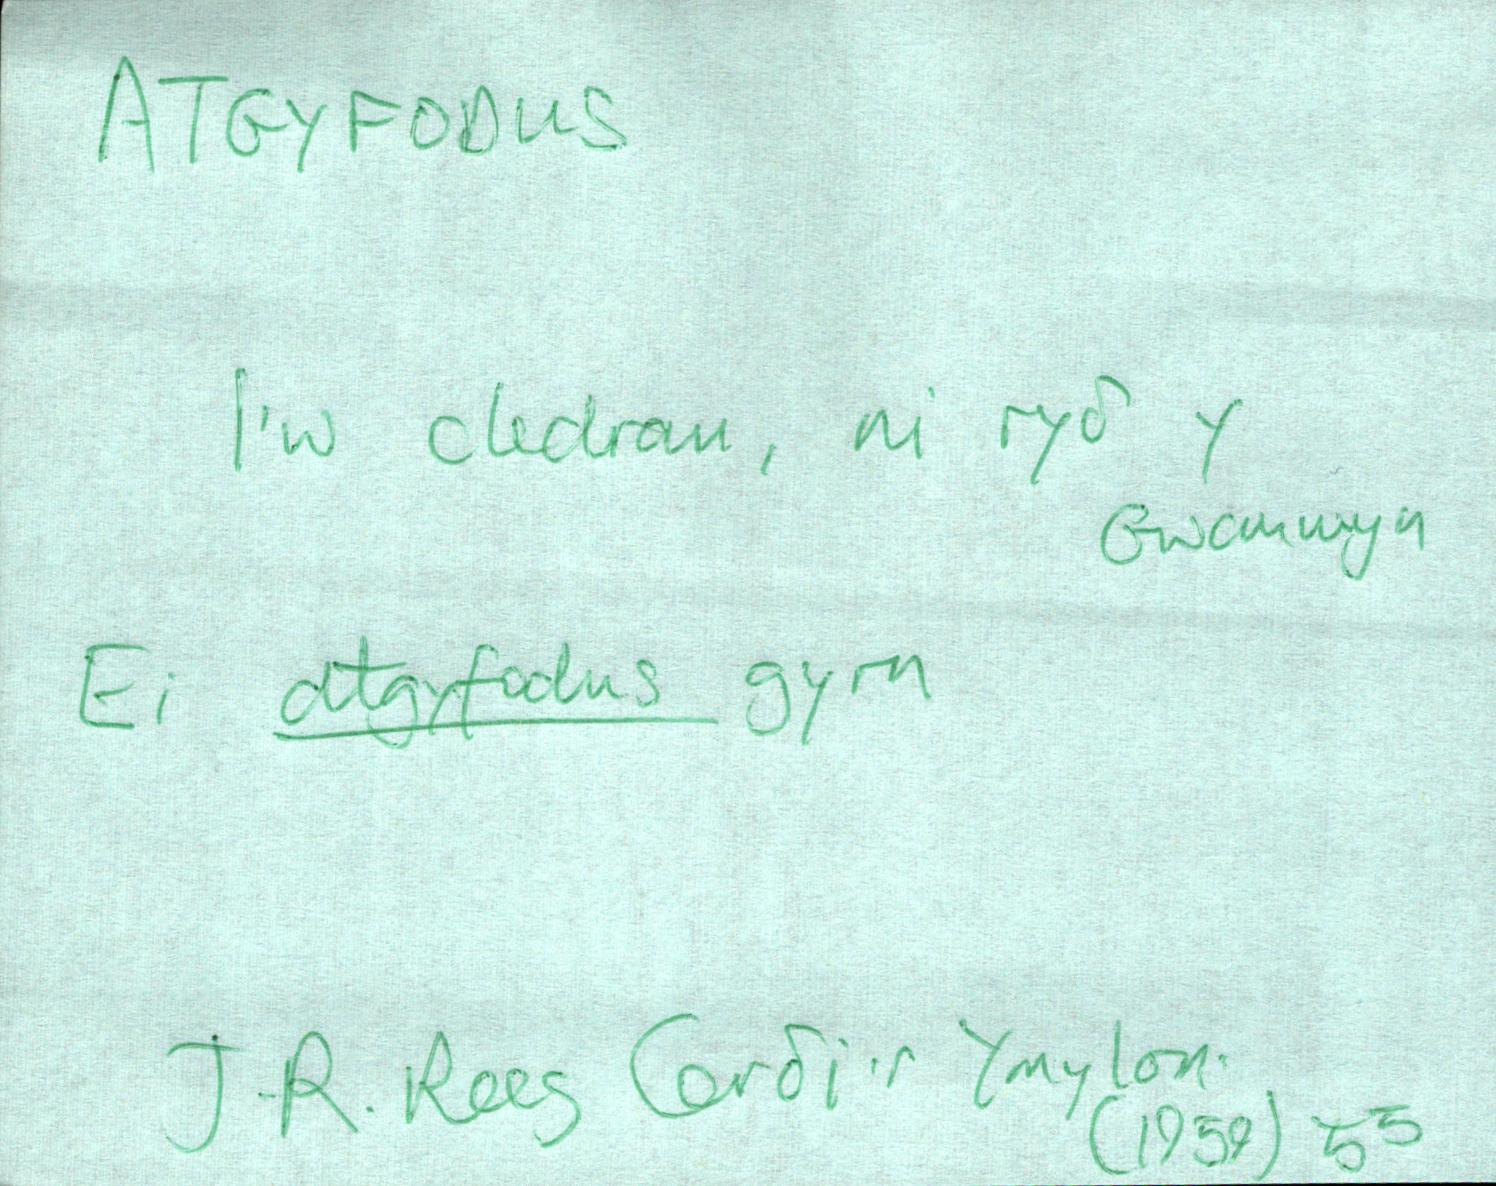 ATGYFODUS
I'w cledrau, ni ryδ y
Gwanwyn
Ei atgyfodus gyrn
J.R. Rees Cerδi'r Ymylon.
(1959) 55